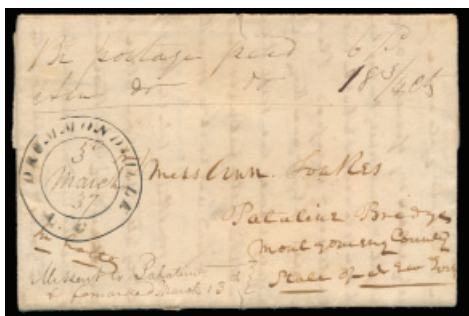 Br postage paid 6
do do 18 3/4 cts
DRUMMONDVILLE
5
March
37
U. C.
Miss Ann. Foakes
Palatine Bridge
Montgomery County
State of New York
Missent to Palatine
& forwarded March 13